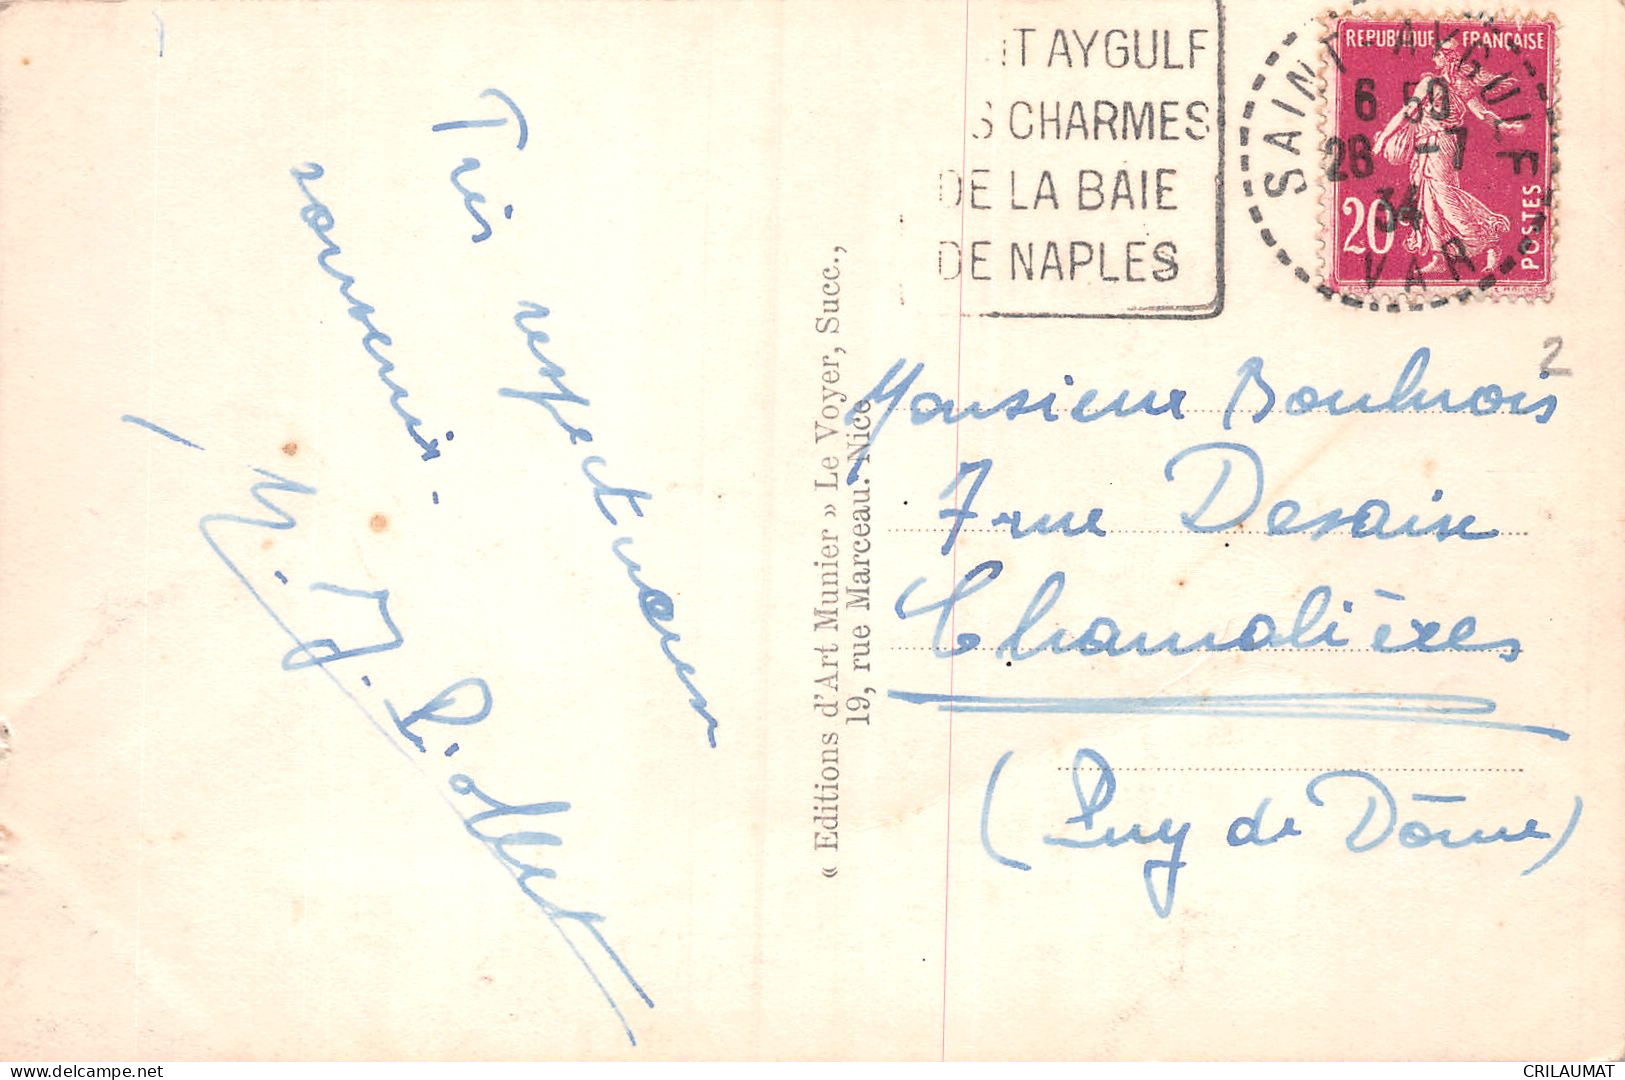 Très respectueux
souvenir.
« Editions d'Art Munier » Le Voyer, Succ.,
19, rue Marceau. Nice
IT AYGULF
S CHARMES
DE LA BAIE
DE NAPLES
SAINT-AYGULF
6 50
26 -7
34
VAR
REPUBLIQUE FRANÇAISE
20c
POSTES
2
Monsieur Boulnois
7 rue Desaix
Chamalières
(Puy de Dôme)
CRILAUMAT